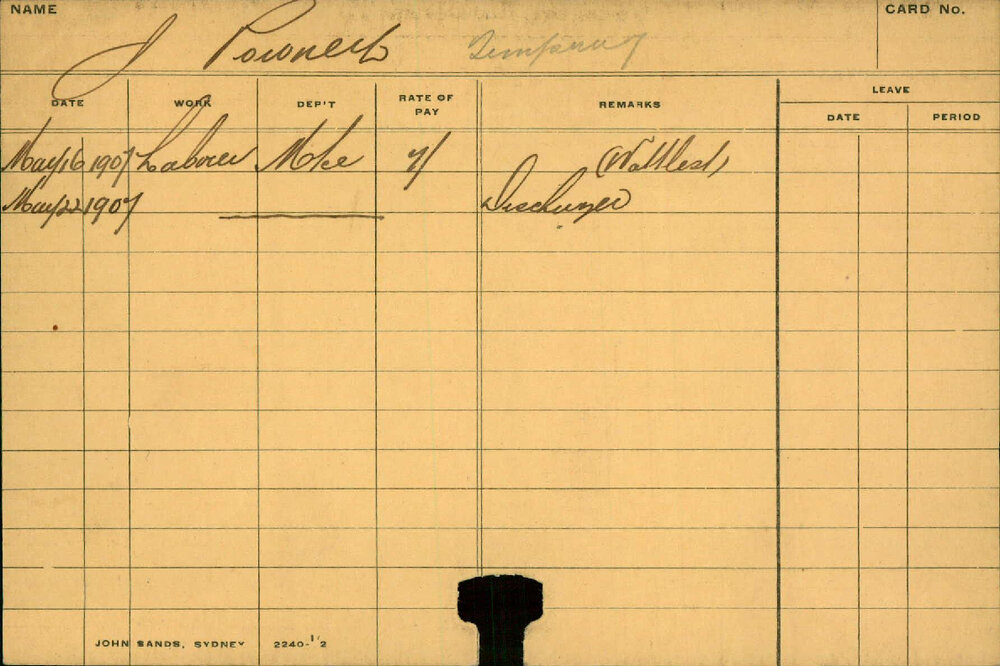 NAME
CARD No.
J Pownell Temporary
DATE WORK DEP'T RATE OF PAY REMARKS LEAVE
DATE PERIOD
May 16 1907 Laborer 7/
May 22 1907 Discharged
JOHN SANDS, SYDNEY 2240-1/2